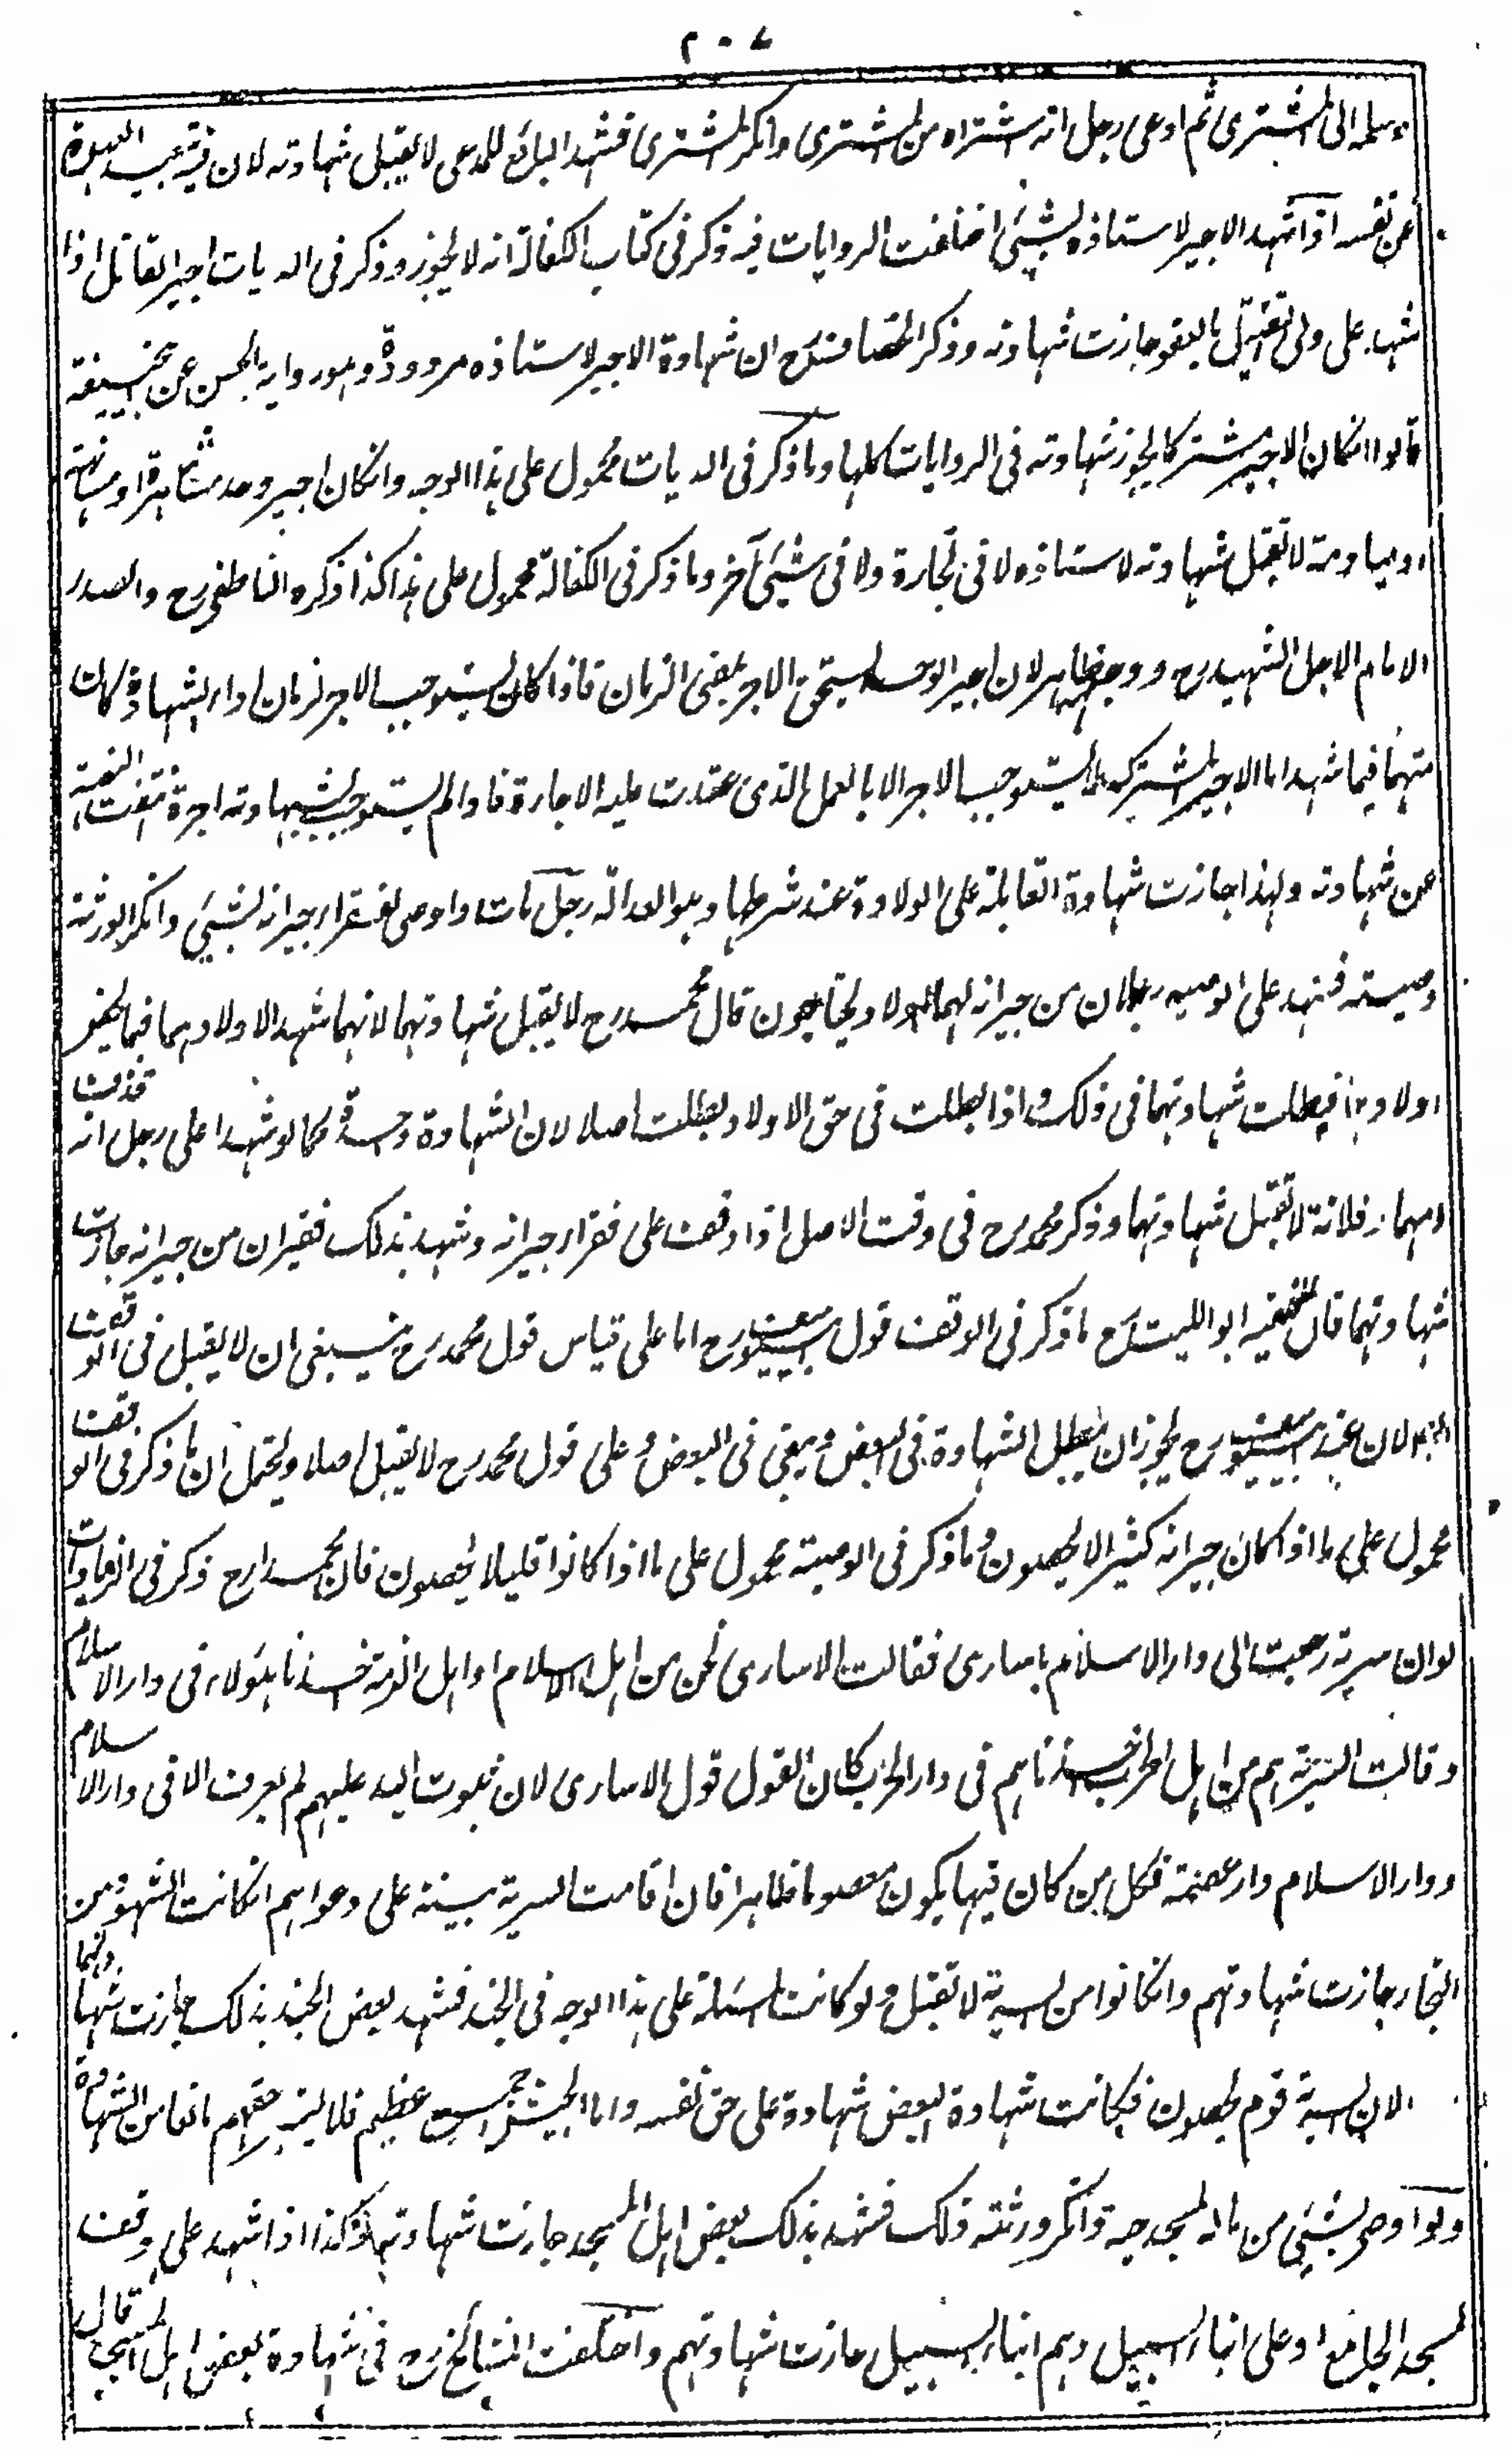 ٢٠٧
وسلمه الى المشترى ثم ادعى رجل انه اشتراه من المشترى وانكر المشترى فشهد البائع للمدعى لا يقبل شهادته لان فيه تبعيد العهدة
عن نفسه اذا شهد الاجير لاستاذه بشيئ اختلفت الروايات فيه ذكر فى كتاب الكفالة انه لا يجوز وذكر فى الديات اجير القاتل اذا
شهد على ولى القتيل بالعفو جازت شهادته وذكر الخصاف رح ان شهادة الاجير لاستاذه مردودة وهو رواية الحسن عن ابيحنيفة
قالوا انكان الاجير مشتركا يجوز شهادته فى الروايات كلها وما ذكر فى الديات محمول على هذا الوجه وانكان اجير وحد مشاهرة او مسانهة
او مياومة لا تقبل شهادته لاستاذه لا فى تجارة ولا فى شيئ آخر وما ذكر فى الكفالة محمول على هذا كذا ذكره الناطفى رح والصدر
الامام الاجل الشهيد رح ووجهه ظاهر لان اجير الوحد يستحق الاجر بمضى الزمان فاذا كان يستوجب الاجر لزمان اداء الشهادة كان
متهما فيما شهد اما الاجير المشترك لا يستوجب الاجر الا بالعمل الذى عقدت عليه الاجارة فاذا لم يستوجب بشهادته اجرة انتفت التهمة
عن شهادته ولهذا جازت شهادة القابلة على الولادة عند شرطها وهو العدالة رجل مات واوصى لفقراء جيرانه بشيئ وانكر الورثة
وصيته فشهد على الوصية رجلان من جيرانه لهما اولاد يحتاجون قال محمد رح لا يقبل شهادتهما لانهما شهدا لاولادهما فيما يخص
اولادهما فبطلت شهادتهما فى ذلك واذا بطلت فى حق الاولاد بطلت اصلا لان الشهادة واحدة كما لو شهدا على رجل انه قذف
امهما وفلانة لا تقبل شهادتهما وذكر محمد رح فى وقف الاصل اذا وقف على فقراء جيرانه وشهد بذلك فقيران من جيرانه جازت
شهادتهما قال الفقيه ابو الليث رح ما ذكر فى الوقف قول ابييوسف رح اما على قياس قول محمد رح ينبغى ان لا يقبل فى الوقف
ايضا لان عند ابييوسف رح يجوز ان يبطل الشهادة فى البعض ويبقى فى البعض وعلى قول محمد رح لا يقبل اصلا ويحتمل ان ما ذكر فى الوقف
محمول على ما اذا كان جيرانه كثيرا لا يحصون وما ذكر فى الوصية محمول على ما اذا كانوا قليلا يحصون فان محمدا رح ذكر فى الزيادات
لو ان سرية رجعت الى دار الاسلام باسارى فقالت الاسارى نحن من اهل الاسلام او اهل الذمة اخذنا هؤلاء فى دار الاسلام
وقالت السرية هم من اهل الحرب اخذناهم فى دار الحرب كان القول قول الاسارى لان ثبوت اليد عليهم لم يعرف الا فى دار الاسلام
ودار الاسلام دار عصمة فكل من كان فيها يكون معصوما ظاهرا فان اقامت السرية بينة على دعواهم انكانت الشهود من
التجار جازت شهادتهم وانكانوا من السرية لا تقبل ولو كانت المسئلة على هذا الوجه فى الجند فشهد بعض الجند بذلك جازت شهادتهما
لان السرية قوم يحصون فكانت شهادة البعض شهادة على حق نفسه واما الجيش جمع عظيم فلا يعتبر حقهم مانعا من الشهادة
ولو اوصى بشيئ من ماله لمسجد حيه وانكر ورثته ذلك فشهد بذلك بعض اهل المسجد جازت شهادتهما وكذا اذا شهد على وقف
المسجد الجامع او على ابناء السبيل وهم ابناء السبيل جازت شهادتهم واختلفت المشائخ رح فى شهادة بعض اهل المسجد قال